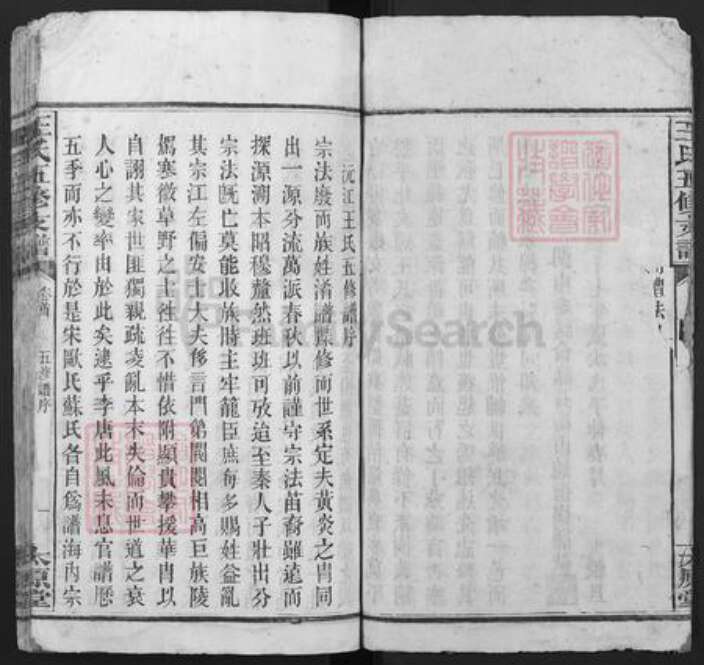 沅江王氏五修譜序
宗法廢而族姓淆譜牒修而世系定夫黃炎之冑同
出一源分流萬派春秋以前謹守宗法苗裔雖遠而
探源溯本昭穆釐然班班可攷迨至秦人子壯出分
宗法既亡莫能收族時主牢籠臣庶每多賜姓益亂
其宗江左偏安士大夫侈言門第閥閱相高巨族陵
駕寒微草野之士往往不惜依附顯貴攀援華冑以
自詡其家世匪獨親疏凌亂本末失倫而世道之衰
人心之變率由於此矣逮乎李唐此風未息官譜歷
五季而亦不行於是宋歐氏蘇氏各自爲譜海内宗
王氏五修支譜
卷首
五修譜序
一
太原堂
王氏五修支譜
太原堂
FamilySearch